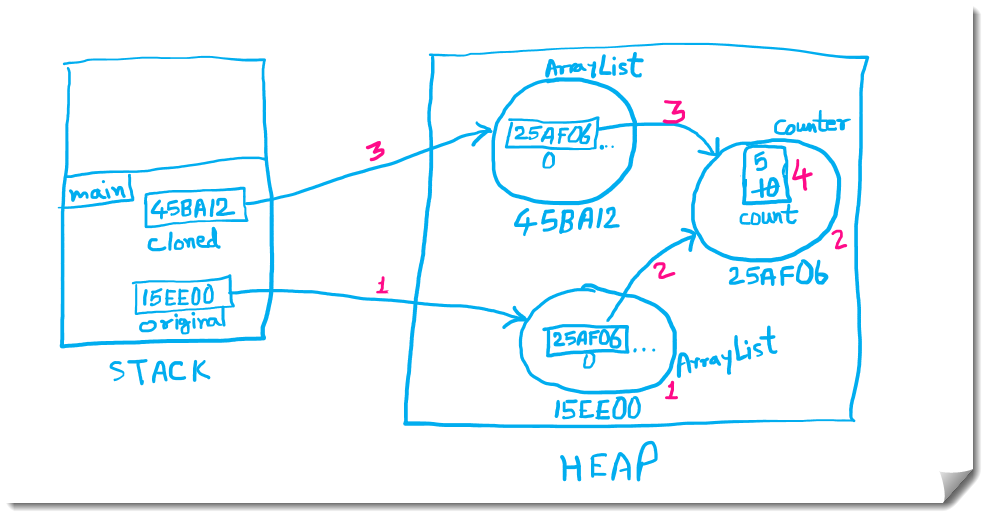 main
45BA12
cloned
15EE00
original
STACK
3
1
ArrayList
25AF06...
0
45BA12
3
Counter
5
10
4
count
2
25AF06
2
25AF06...
0
ArrayList
1
15EE00
HEAP